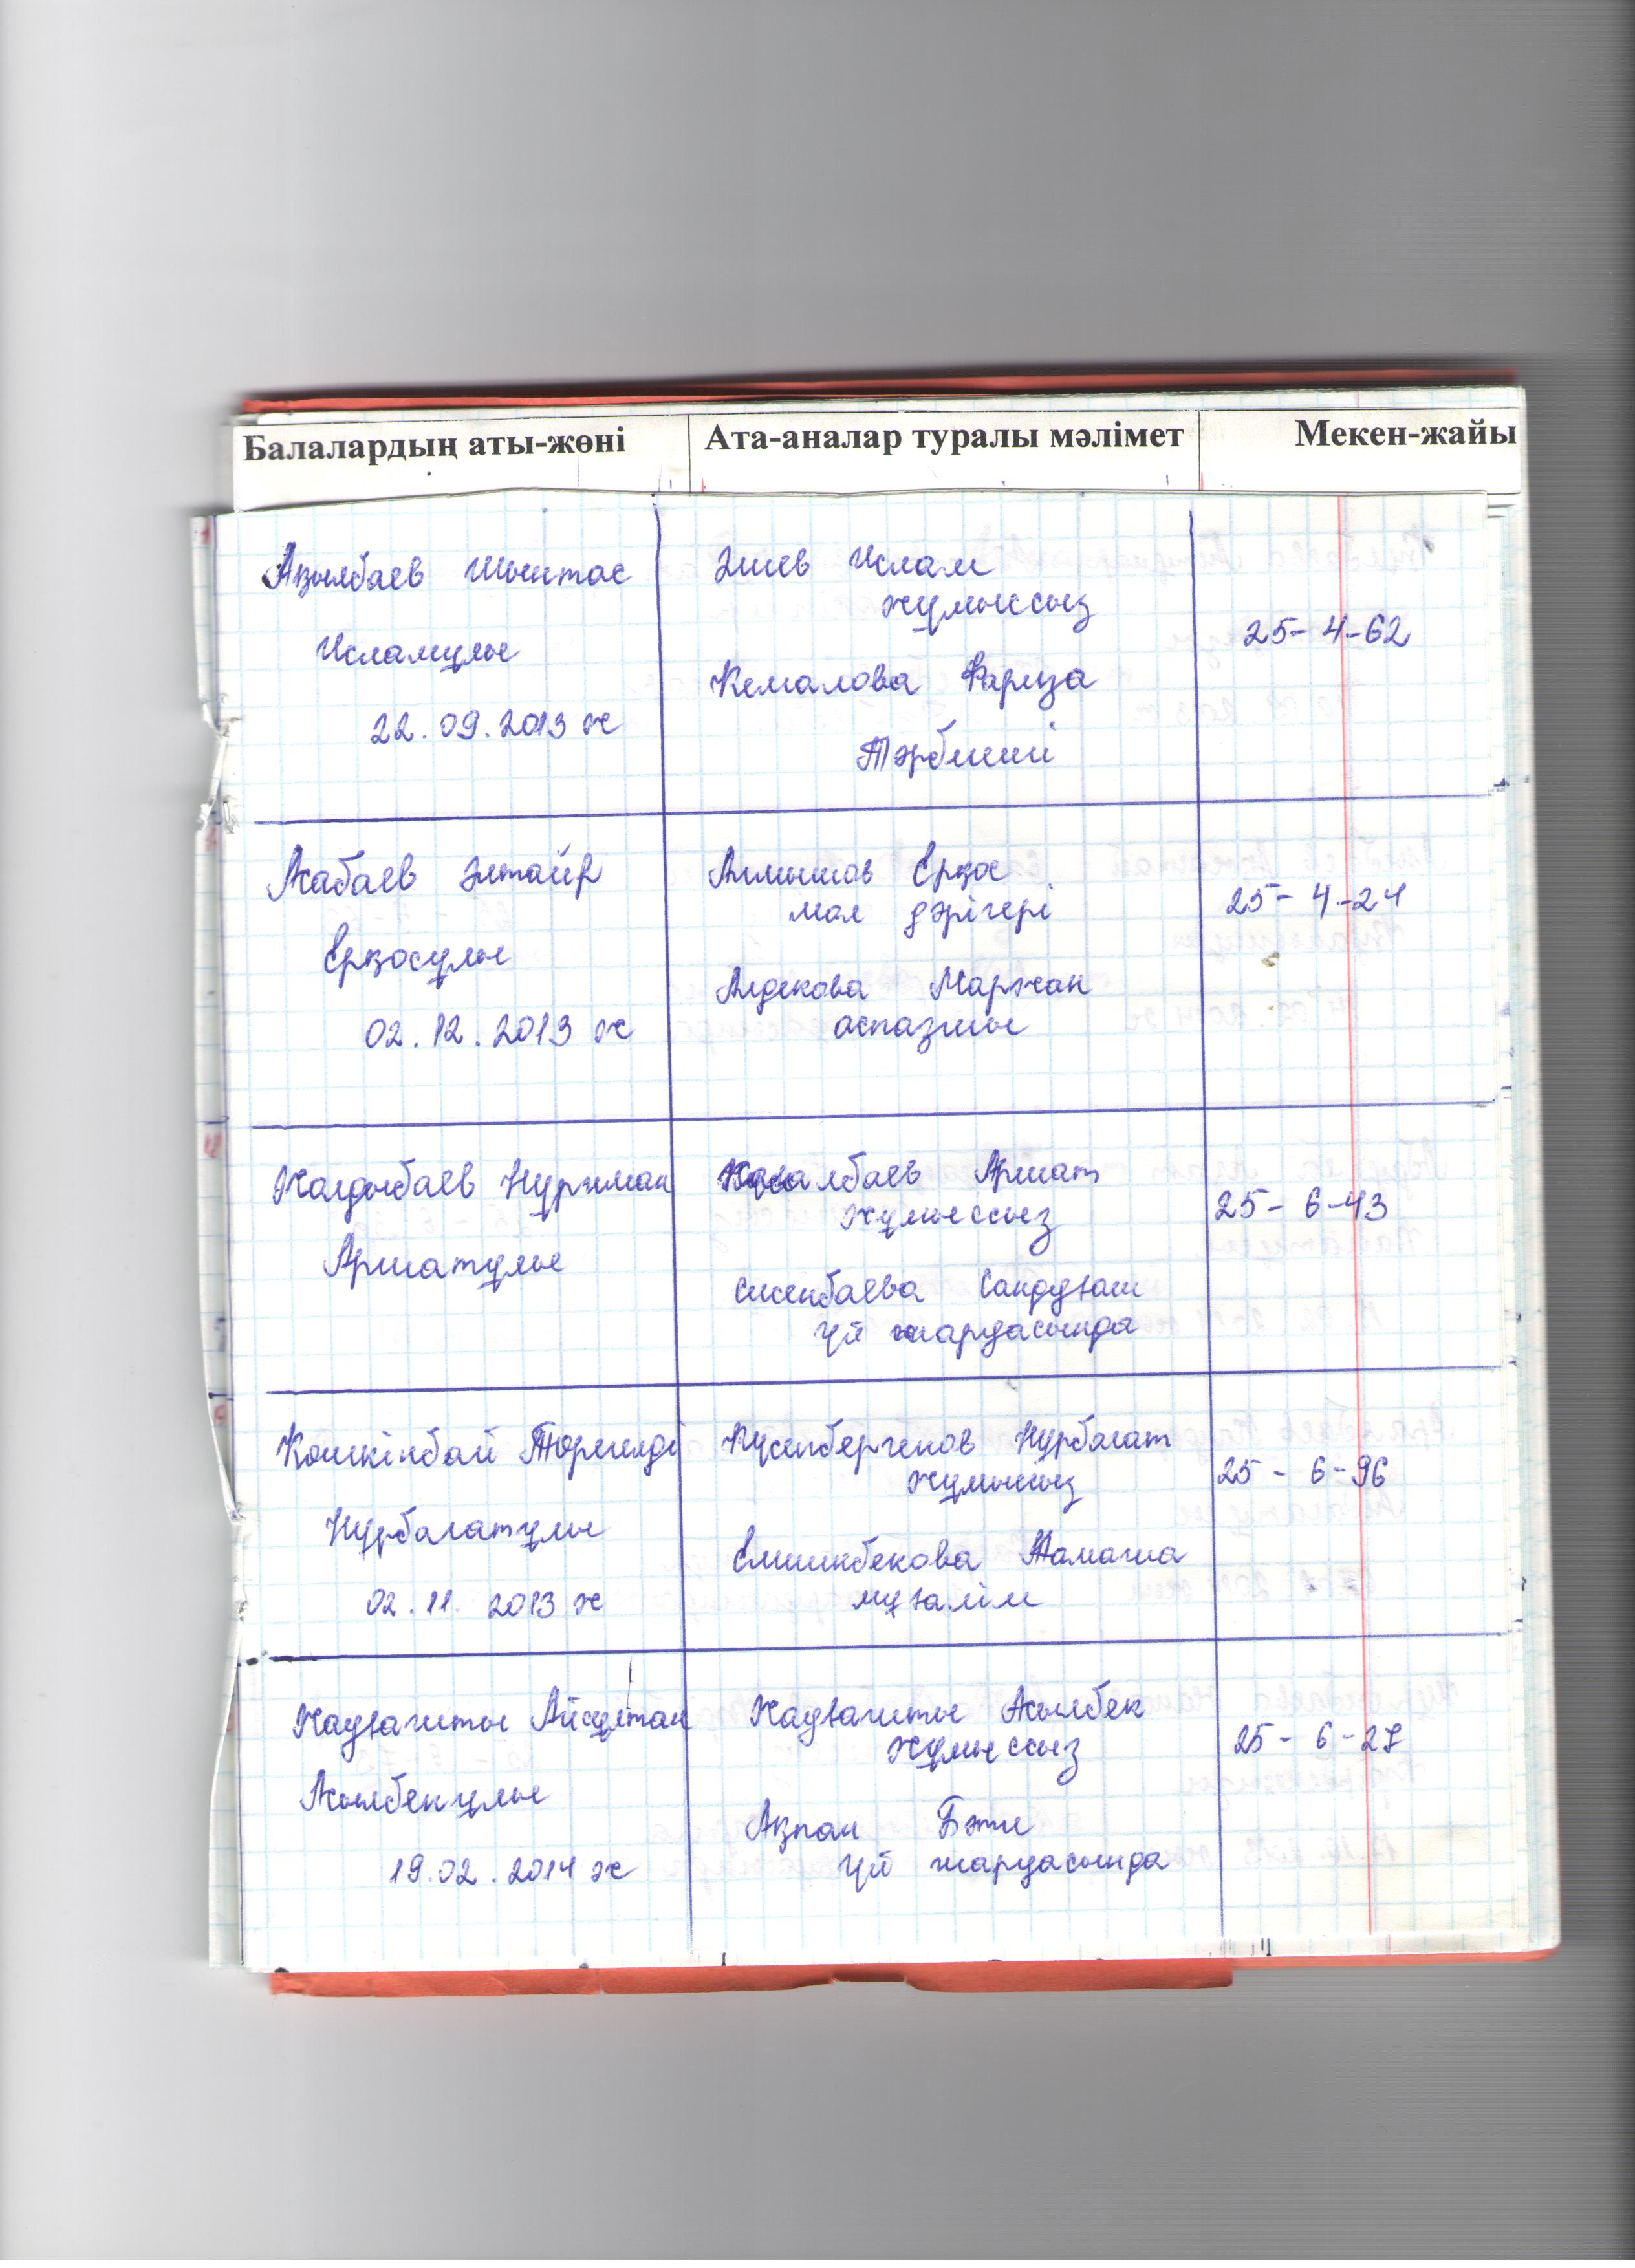 Балалардың аты-жөні
Ата-аналар туралы мәлімет
Мекен-жайы
Ақылбаев Шынтас
Исламұлы
22.09.2013 ж
Ислам
жұмыссыз
Кемалова Фариза
Тәрбиеші
25-4-62
Ақабаев Элтайр
Ерқосұлы
02.12.2013 ж
Ерқос
мал дәрігері
Алдекова Маржан
аспазшы
25-4-24
Жолдыбаев Нұрхман
Аршатұлы
Аршат
жұмыссыз
Сисенбаева Сандуғаш
үй шаруасында
25-6-43
Көшкінбай Төрегелді
Нұрболатұлы
02.11.2013 ж
Нұрболат
жұмысыз
мұғалім
25-6-96
Наурызғалиты Айсұлтан
Ақылбекұлы
19.02.2014 ж
Ақылбек
жұмыссыз
Ақпан Бәти
үй шаруасында
25-6-27